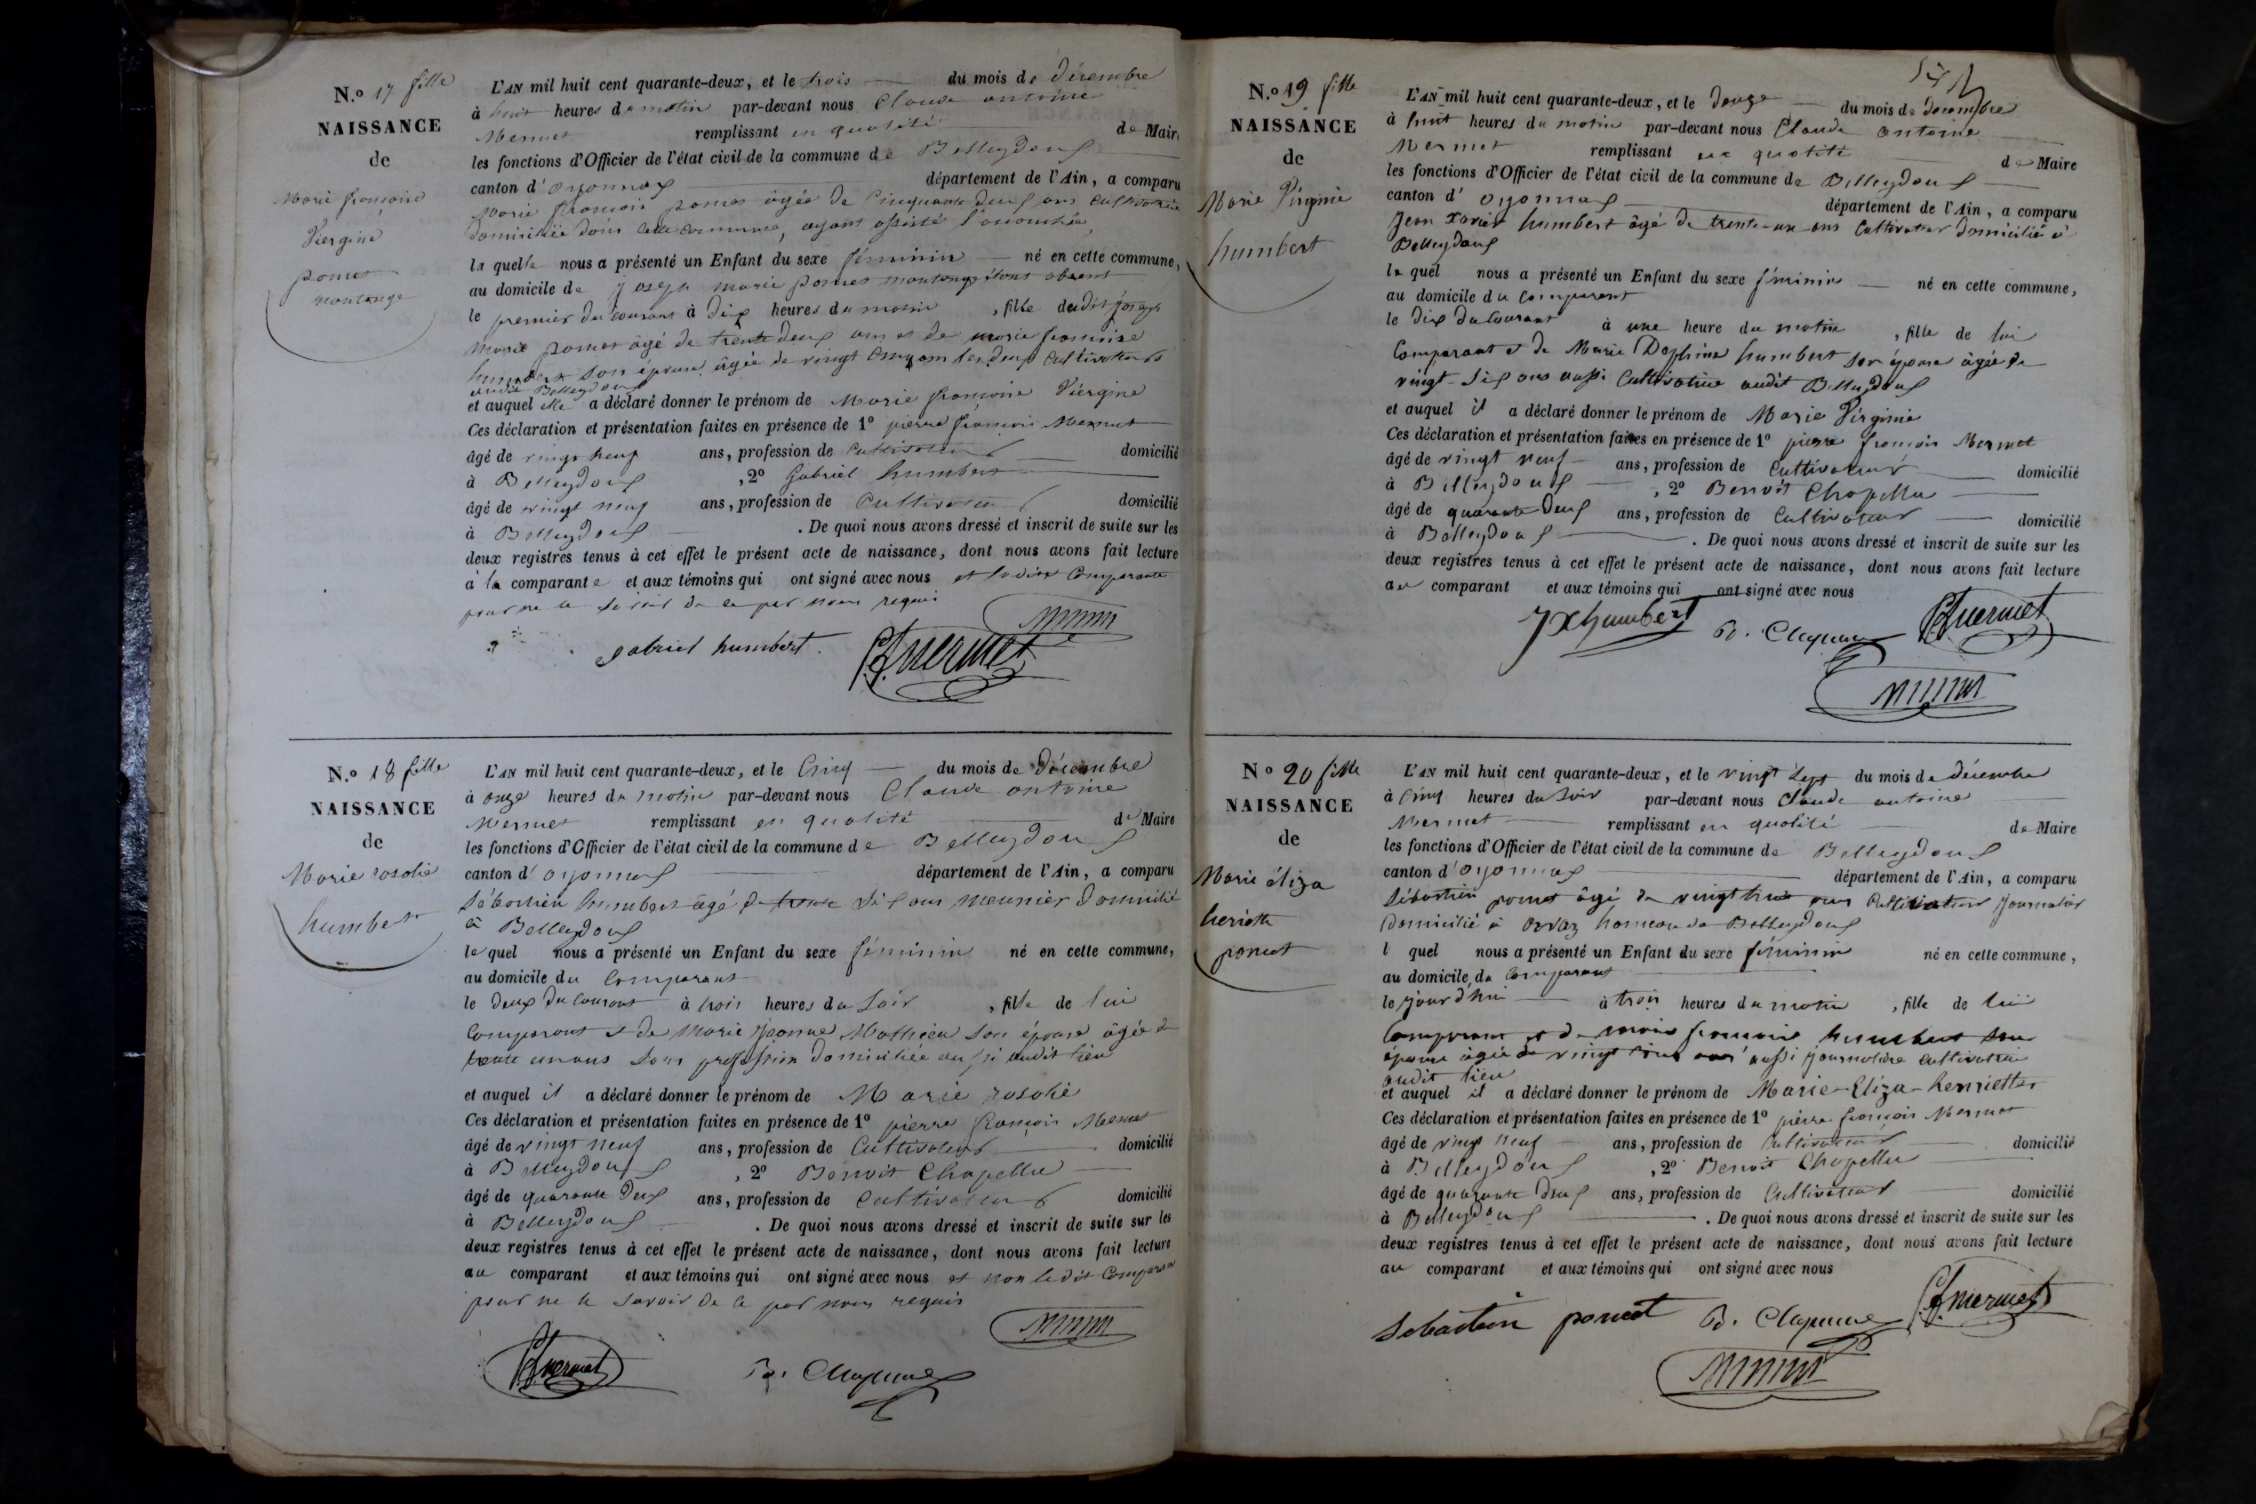 N.o 17 fille
NAISSANCE
de
Marie françoise
Viergine
pomet
montange
L'AN mil huit cent quarante-deux, et le trois du mois de décembre
à huit heures du matin par-devant nous Claude antoine
Mermet remplissant en qualité de Maire
les fonctions d'Officier de l'état civil de la commune de Belleydoux
canton d'oyonnax département de l'Ain, a comparu
Marie françoise pomet âgée de Cinquante deux ans Cultivatrice
domiciliée dans cette commune, ayant assisté l'accouchée,
la quelle nous a présenté un Enfant du sexe féminin né en cette commune,
au domicile de joseph marie pomet montange étant absent
le premier du courant à dix heures du matin , fille dudit joseph
marie pomet âgé de trente deux ans et de marie françoise
humbert son épouse âgée de vingt cinq ans les deux cultivateurs
audit Belleydoux
et auquel elle a déclaré donner le prénom de Marie françoise Viergine
Ces déclaration et présentation faites en présence de 1º pierre françois Mermet
âgé de vingt neuf ans, profession de Cultivateur domicilié
à Belleydoux , 2º Gabriel humbert
âgé de vingt neuf ans, profession de Cultivateur domicilié
à Belleydoux . De quoi nous avons dressé et inscrit de suite sur les
deux registres tenus à cet effet le présent acte de naissance, dont nous avons fait lecture
à la comparante et aux témoins qui ont signé avec nous et ladite Comparante
pour ne le savoir de ce par nous requis
Mermet
gabriel humbert. P.f. mermet
N.o 18 fille
NAISSANCE
de
Marie rosalie
humbert
L'AN mil huit cent quarante-deux, et le Cinq du mois de Décembre
à onze heures du matin par-devant nous Claude antoine
Mermet remplissant en qualité de Maire
les fonctions d'Officier de l'état civil de la commune de Belleydoux
canton d'oyonnax département de l'Ain, a comparu
Sébastien humbert âgé de trente six ans meunier Domicilié
à Belleydoux
lequel nous a présenté un Enfant du sexe féminin né en cette commune,
au domicile du Comparant
le deux du Courant à trois heures du Soir , fille de lui
Comparant et de Marie Mathieu son épouse âgée de
trente un ans Sans profession domiciliée audit lieu
et auquel il a déclaré donner le prénom de Marie rosalie
Ces déclaration et présentation faites en présence de 1º pierre françois Mermet
âgé de vingt neuf ans, profession de Cultivateur domicilié
à Belleydoux , 2º Benoit Chapelle
âgé de quarante deux ans, profession de Cultivateur domicilié
à Belleydoux . De quoi nous avons dressé et inscrit de suite sur les
deux registres tenus à cet effet le présent acte de naissance, dont nous avons fait lecture
au comparant et aux témoins qui ont signé avec nous et non ledit Comparant
pour ne le Savoir de ce par nous requis
Mermet
P.f. mermet
N.o 19 fille
NAISSANCE
de
Marie Virginie
humbert
L'AN mil huit cent quarante-deux, et le douze du mois de décembre
à huit heures du matin par-devant nous Claude antoine
Mermet remplissant en qualité de Maire
les fonctions d'Officier de l'état civil de la commune de Belleydoux
canton d'oyonnax département de l'Ain, a comparu
Jean Xavier humbert âgé de trente-un ans Cultivateur domicilié à
Belleydoux
lequel nous a présenté un Enfant du sexe féminin né en cette commune,
au domicile du comparant
le dix du Courant à une heure du matin , fille de lui
Comparant et de Marie Delphine humbert son épouse âgée de
vingt-six ans aussi Cultivatrice audit Belleydoux
et auquel il a déclaré donner le prénom de Marie Virginie
Ces déclaration et présentation faites en présence de 1º pierre françois Mermet
âgé de vingt neuf ans, profession de Cultivateur domicilié
à Belleydoux , 2º Benoit Chapelle
âgé de quarante deux ans, profession de Cultivateur domicilié
à Belleydoux . De quoi nous avons dressé et inscrit de suite sur les
deux registres tenus à cet effet le présent acte de naissance, dont nous avons fait lecture
au comparant et aux témoins qui ont signé avec nous
JXhumbert P.f. mermet
Mermet
No 20 fille
NAISSANCE
de
Marie éliza
heriette
pomet
L'AN mil huit cent quarante-deux, et le vingt Sept du mois de décembre
à Cinq heures du Soir par-devant nous Claude antoine
Mermet remplissant en qualité de Maire
les fonctions d'Officier de l'état civil de la commune de Belleydoux
canton d'oyonnax département de l'Ain, a comparu
Sébastien pomet âgé de vingt huit ans Cultivateur Journalier
Domicilié à Orvaz hameau de Belleydoux
l quel nous a présenté un Enfant du sexe féminin né en cette commune,
au domicile du Comparant
le jourd'hui à trois heures du matin , fille de lui
Comparant et de marie françoise humbert son
épouse âgée de vingt cinq ans aussi journalière cultivatrice
audit lieu
et auquel il a déclaré donner le prénom de Marie-Eliza-henriette
Ces déclaration et présentation faites en présence de 1º pierre françois Mermet
âgé de vingt neuf ans, profession de Cultivateur domicilié
à Belleydoux , 2º Benoit Chapelle
âgé de quarante deux ans, profession de Cultivateur domicilié
à Belleydoux . De quoi nous avons dressé et inscrit de suite sur les
deux registres tenus à cet effet le présent acte de naissance, dont nous avons fait lecture
au comparant et aux témoins qui ont signé avec nous
Sebastien pomet P.f. mermet
Mermet